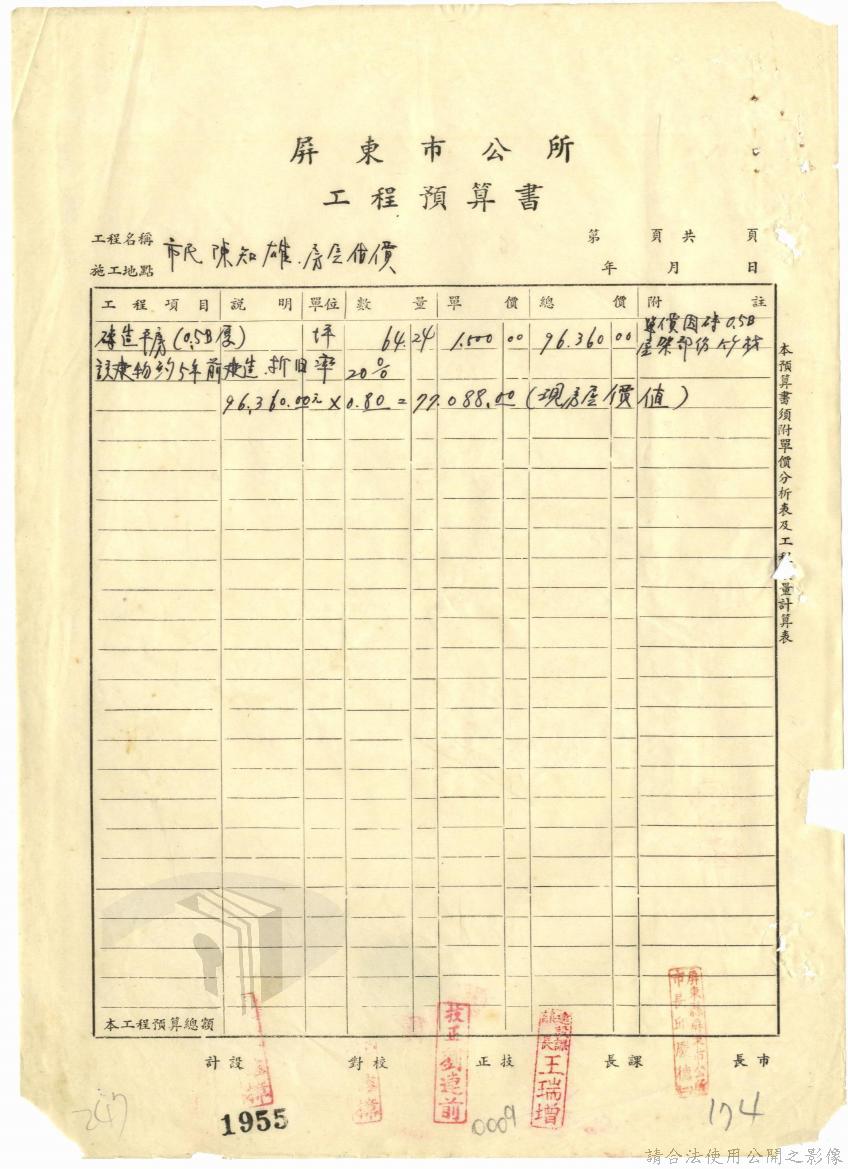 屏東市公所
工程預算書
工程名稱
施工地點
市民 陳知雄 房屋估價
第 頁共 頁
年 月 日
工程項目 說明 單位 數量 單價 總價 附註
磚造平房(0.5B厚) 坪 64.24 1.500 00 96.360 00 單價因磚0.5B
屋架部份
該建物約5年前建造 折旧率 20%
96,360.00元×0.80=77.088.00(現房屋價值)
本預算書須附單價分析表及工程 量計算表
本工程預算總額
計設 對校 正技 長課 長市
技正
建設課
課長 王瑞增
屏東縣屏東市公所
市長
247
1955
0009
174
請合法使用公開之影像